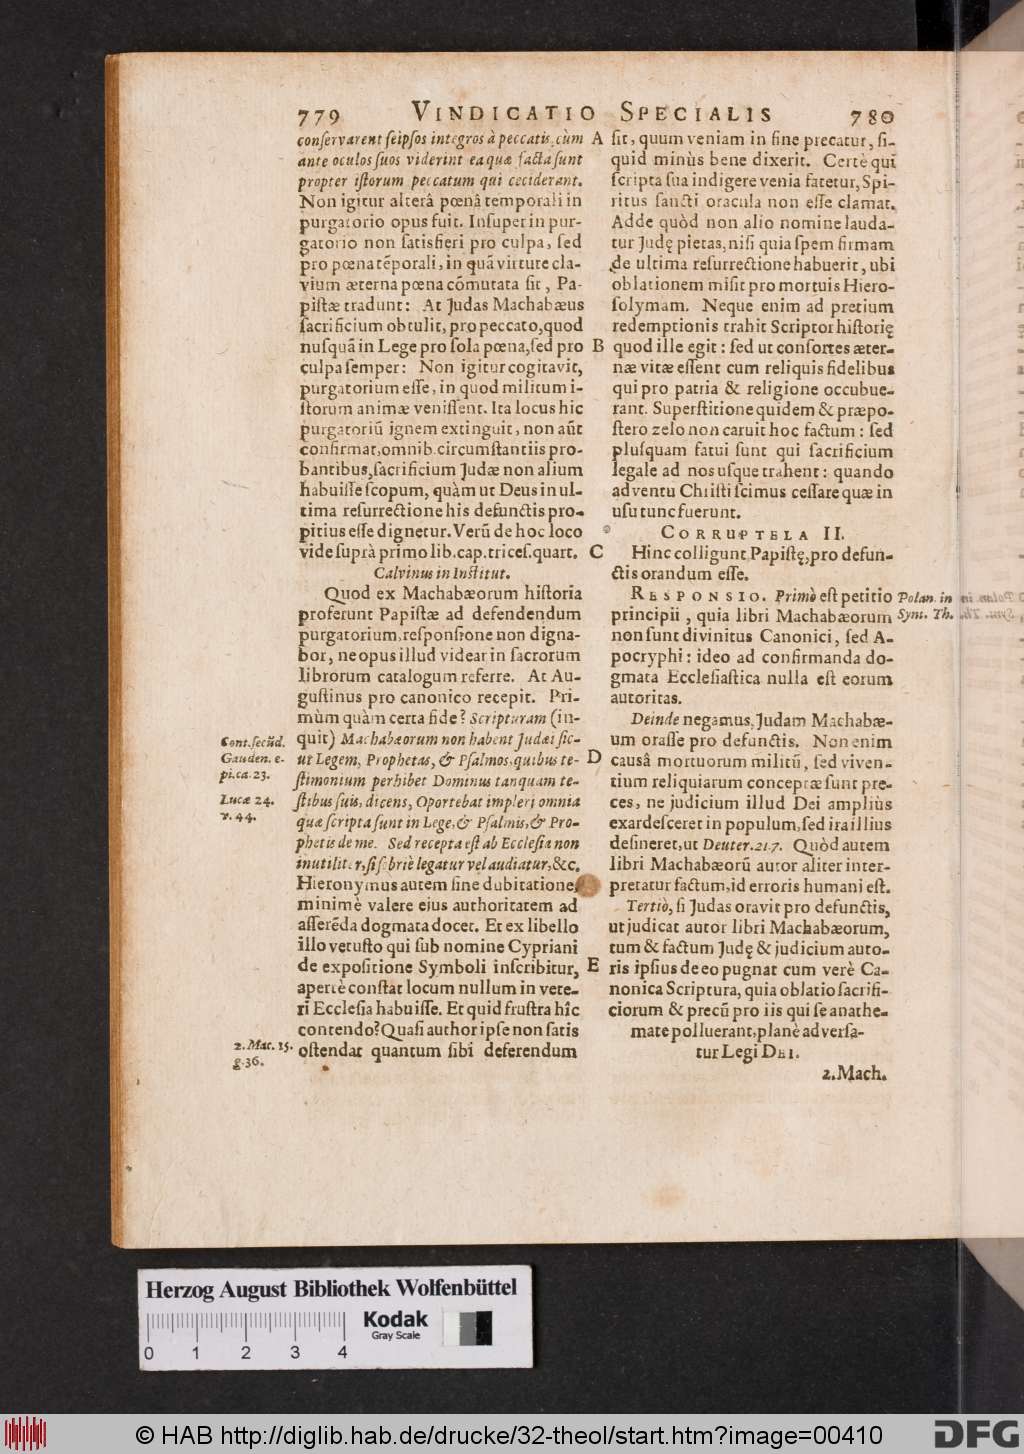 779 VINDICATIO SPECIALIS 780
conſervarent ſeipſos integros à peccatis, cùm
ante oculos ſuos viderint ea quæ facta ſunt
propter iſtorum peccatum qui ceciderant.
Non igitur alterâ pœnâ temporali in
purgatorio opus fuit. Inſuper in pur-
gatorio non ſatisfieri pro culpa, ſed
pro pœna tẽporali, in quã virtute cla-
vium æterna pœna cõmutata ſit, Pa-
piſtæ tradunt: At Judas Machabæus
ſacrificium obtulit, pro peccato, quod
nuſquã in Lege pro ſola pœna, ſed pro
culpa ſemper: Non igitur cogitavit,
purgatorium eſſe, in quod militum i-
ſtorum animæ veniſſent. Ita locus hic
purgatoriũ ignem extinguit, non aũt
confirmat, omnib. circumſtantiis pro-
bantibus, ſacrificium Judæ non alium
habuiſſe ſcopum, quàm ut Deus in ul-
tima reſurrectione his defunctis pro-
pitius eſſe dignetur. Verũ de hoc loco
vide ſuprà primo lib. cap. triceſ. quart.
Calvinus in Inſtitut.
Quod ex Machabæorum hiſtoria
proferunt Papiſtæ ad defendendum
purgatorium, reſponſione non digna-
bor, ne opus illud videar in ſacrorum
librorum catalogum referre. At Au-
guſtinus pro canonico recepit. Pri-
mùm quàm certa fide? Scripturam (in-
quit) Machabæorum non habent Judæi ſic-
ut Legem, Prophetas, & Pſalmos, quibus te-
ſtimonium perhibet Dominus tanquam te-
ſtibus ſuis, dicens, Oportebat impleri omnia
quæ ſcripta ſunt in Lege, & Pſalmis, & Pro-
phetis de me. Sed recepta eſt ab Eccleſia non
inutiliter, ſi ſobriè legatur vel audiatur, &c.
Hieronymus autem ſine dubitatione,
minimè valere ejus authoritatem ad
aſſerẽda dogmata docet. Et ex libello
illo vetuſto qui ſub nomine Cypriani
de expoſitione Symboli inſcribitur,
apertè conſtat locum nullum in vete-
ri Eccleſia habuiſſe. Et quid fruſtra hîc
contendo? Quaſi author ipſe non ſatis
oſtendat quantum ſibi deferendum
Cont. ſecũd.
Gauden. e-
pi. ca. 23.
Lucæ 24.
v. 44.
2. Mac. 15.
g. 36.
A
B
C
D
E
ſit, quum veniam in fine precatur, ſi-
quid minùs bene dixerit. Certè qui
ſcripta ſua indigere venia fatetur, Spi-
ritus ſancti oracula non eſſe clamat.
Adde quòd non alio nomine lauda-
tur Judę pietas, niſi quia ſpem firmam
de ultima reſurrectione habuerit, ubi
oblationem miſit pro mortuis Hiero-
ſolymam. Neque enim ad pretium
redemptionis trahit Scriptor hiſtorię
quod ille egit: ſed ut conſortes æter-
næ vitæ eſſent cum reliquis fidelibus
qui pro patria & religione occubue-
rant. Superſtitione quidem & præpo-
ſtero zelo non caruit hoc factum: ſed
pluſquam fatui ſunt qui ſacrificium
legale ad nos uſque trahent: quando
adventu Chriſti ſcimus ceſſare quæ in
uſu tunc fuerunt.
CORRUPTELA II.
Hinc colligunt Papiſtę, pro defun-
ctis orandum eſſe.
RESPONSIO. Primò eſt petitio
principii, quia libri Machabæorum
non ſunt divinitus Canonici, ſed A-
pocryphi: ideo ad confirmanda do-
gmata Eccleſiaſtica nulla eſt eorum
autoritas.
Deinde negamus, Judam Machabæ-
um oraſſe pro defunctis. Non enim
causâ mortuorum militũ, ſed viven-
tium reliquiarum conceptæ ſunt pre-
ces, ne judicium illud Dei ampliùs
exardeſceret in populum, ſed ira illius
deſineret, ut Deuter. 21.7. Quòd autem
libri Machabæorũ autor aliter inter-
pretatur factum, id erroris humani eſt.
Tertiò, ſi Judas oravit pro defunctis,
ut judicat autor libri Machabæorum,
tum & factum Judę & judicium auto-
ris ipſius de eo pugnat cum verè Ca-
nonica Scriptura, quia oblatio ſacrifi-
ciorum & precũ pro iis qui ſe anathe-
mate polluerant, planè adverſa-
tur Legi DEI.
2. Mach.
Polan. in
Synt. Th.
Herzog August Bibliothek Wolfenbüttel
Kodak
Gray Scale
0 1 2 3 4
© HAB http://diglib.hab.de/drucke/32-theol/start.htm?image=00410
DFG